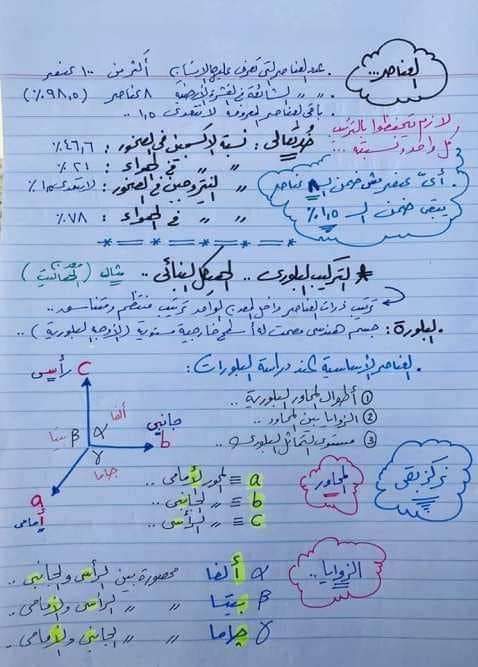 العناصر...
. عدد العناصر التي تعرف عليها الإنسان أكثر من ١٠٠ عنصر
. " " الشائعة في القشرة الأرضية ٨ عناصر (٩٨,٥٪)
. باقي العناصر المعروفة لا تتعدى ١,٥
لازم تتحفظوا بالترتيب
كل واحد ونسبته ...
خد تعالى : نسبة الأكسجين في الصخور : ٤٦,٦٪
" " في الهواء : ٢١٪
" النيتروجين في الصخور : لا تتعدى ١,٥٪
" " في الهواء : ٧٨٪
. أي عنصر مش ضمن الـ ٨ عناصر
يبقى ضمن الـ ١,٥٪
* التركيب البلوري .. الهيكل البنائي .. مثال (معدن الهاليت)
ترتيب ذرات العناصر داخل المعدن الواحد ترتيب منتظم ومتناسق ..
. البلورة : جسم هندسي مصمت له أسطح خارجية مستوية (الأوجه البلورية) ..
. العناصر الأساسية عند دراسة البلورات :
① أطوال المحاور البلورية ..
② الزوايا بين المحاور ..
③ مستوى التماثل البلوري ..
c رأسي
ألفا
بيتا β α
جانبي
b
γ
جاما
a
أمامي
نركز بقى
المحاور
a ≡ المحور الأمامي ..
b ≡ " الجانبي ..
c ≡ " الرأسي ..
الزوايا ..
α ألفا محصورة بين الرأسي والجانبي ..
β بيتا " " الرأسي والأمامي ..
γ جاما " " الجانبي والأمامي ..